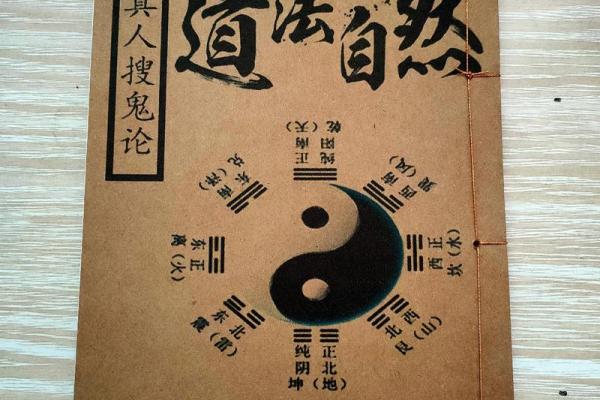 道法自然
真人搜鬼论
乾（天）
正南
纯阳
西南
巽（风）
正西
坎（水）
西北
艮（山）
纯阴
正北
坤（地）
东北
震（雷）
正东
离（火）
东南
兑（泽）